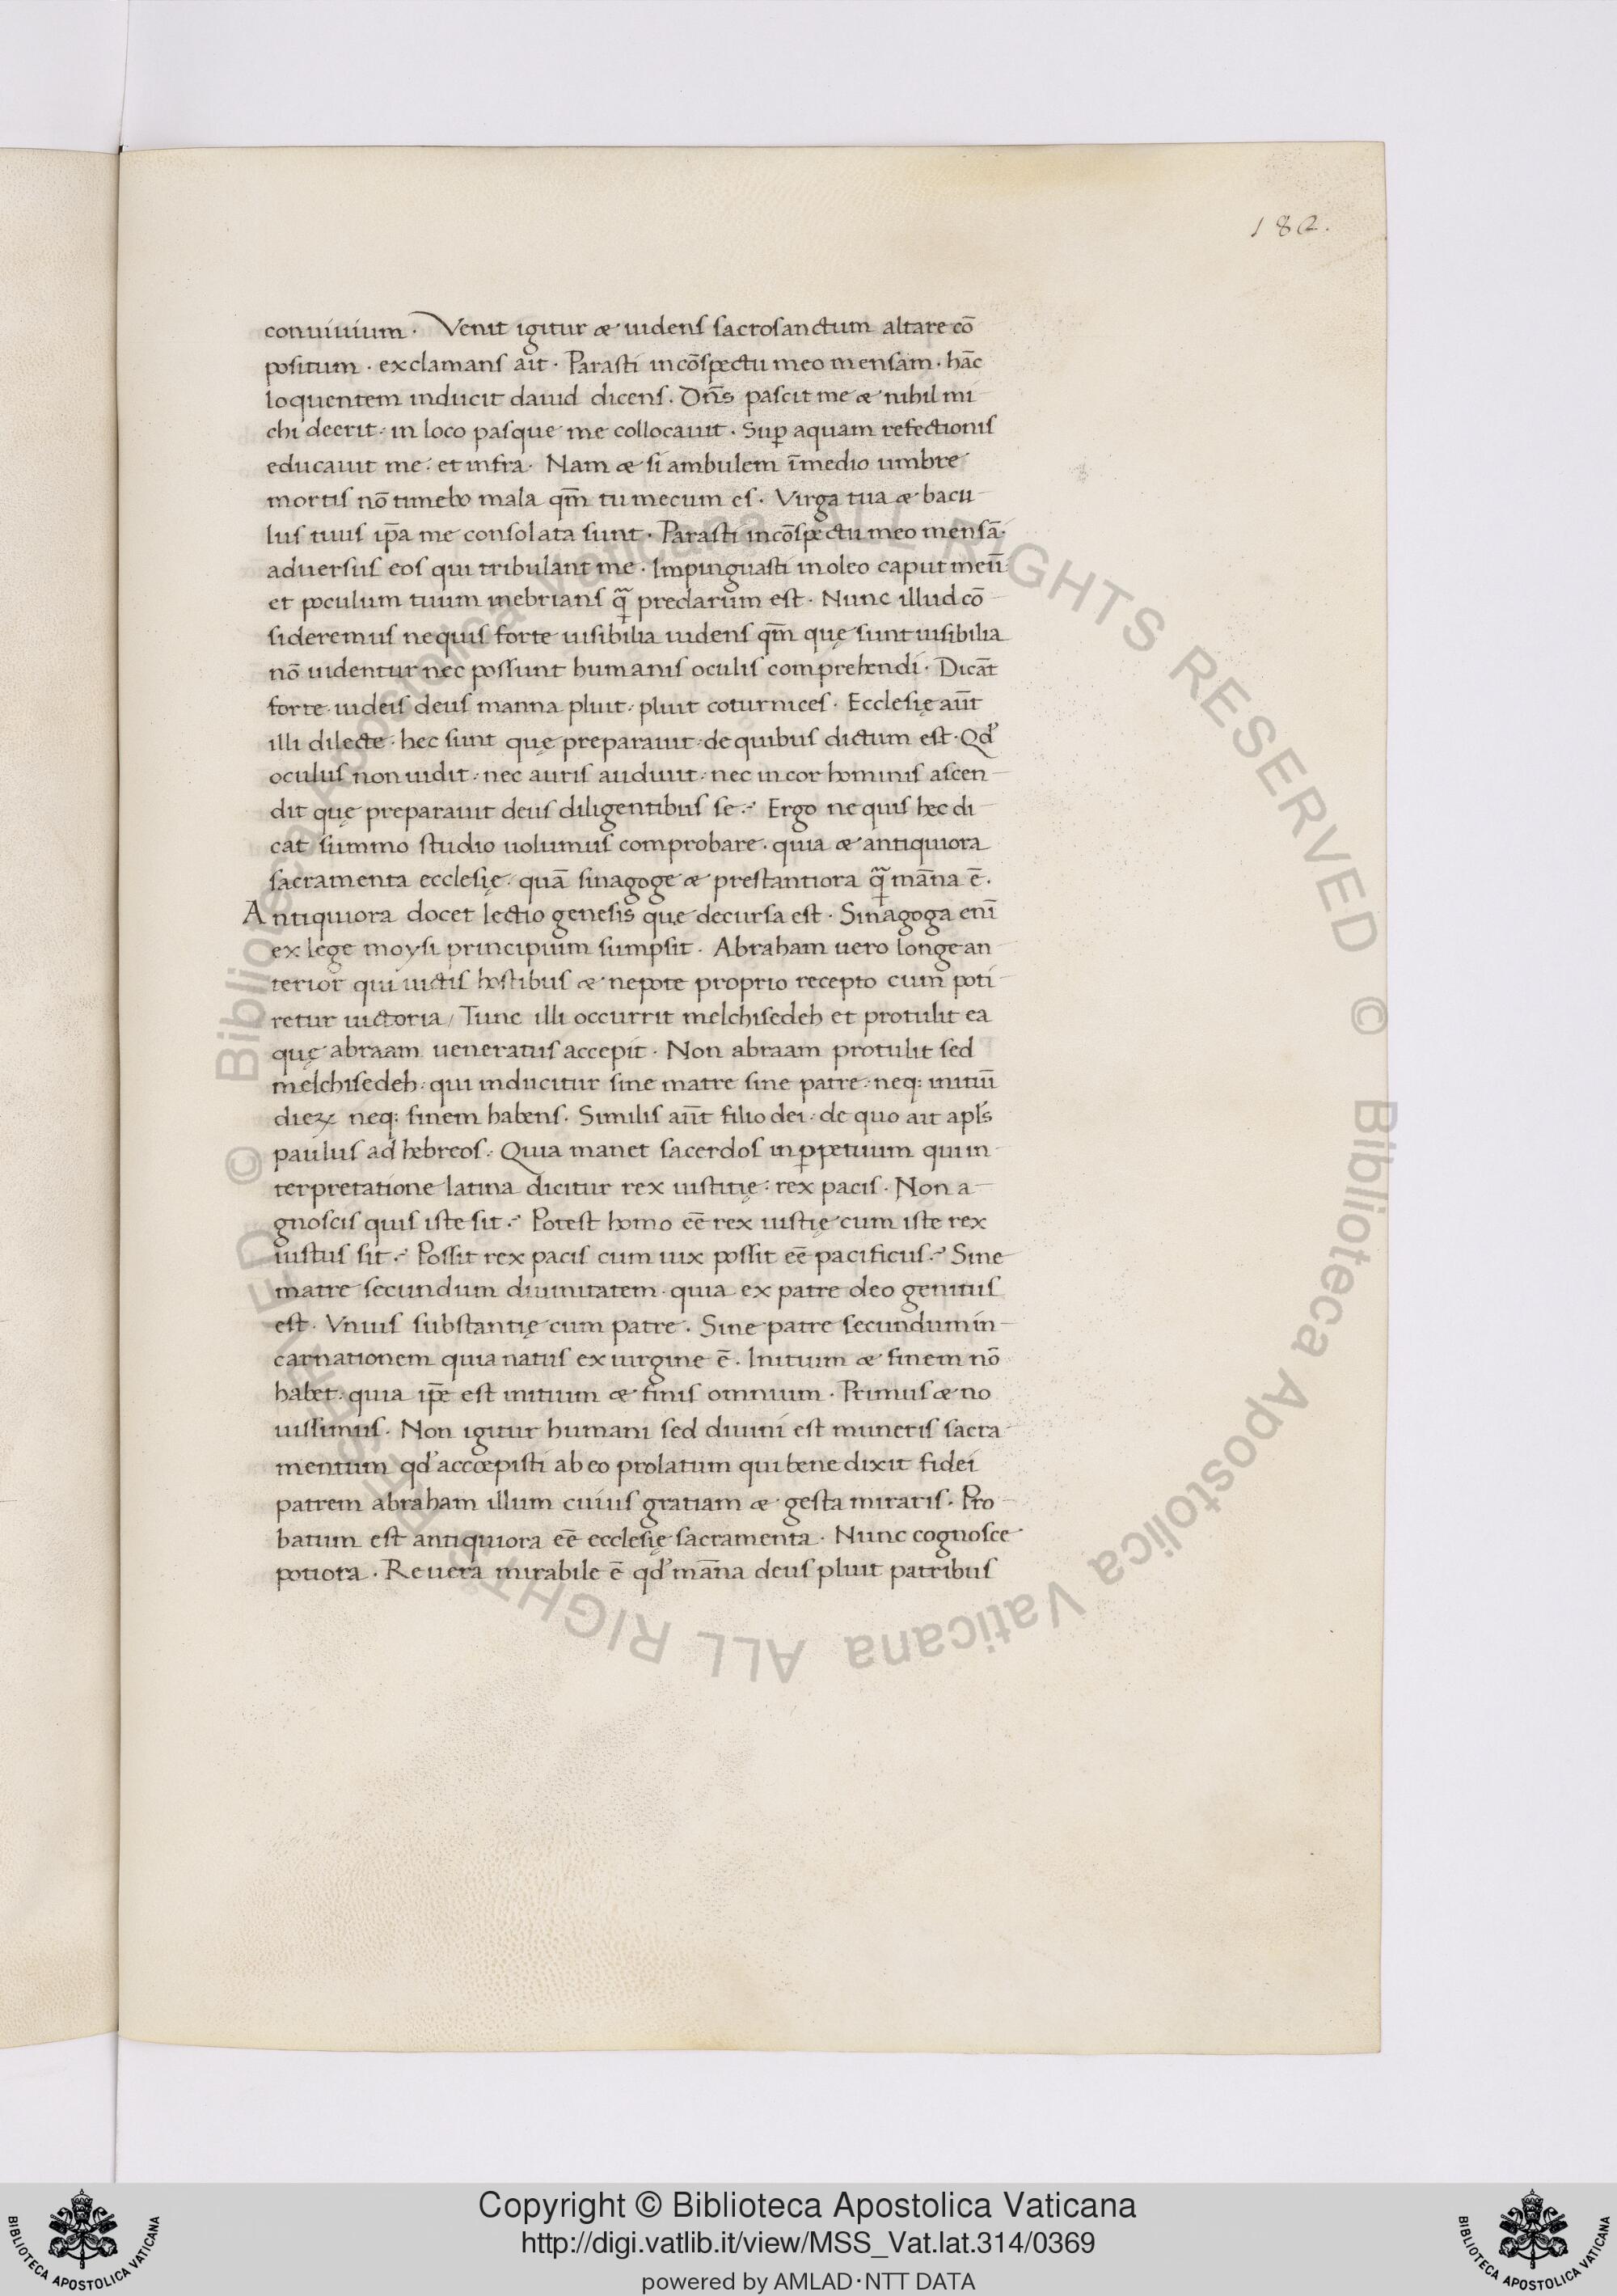 182.
conuiuium · Venit igitur & uidens sacrosanctum altare cō
positum · exclamans ait · Parasti in cōspectu meo mensam · hāc
loquentem inducit dauid dicens · Dn̄s pascit me & nihil mi
chi deerit · in loco pasque me collocauit · Sup̄ aquam refectionis
educauit me · et infra · Nam & si ambulem ī medio umbre
mortis nō timebo mala qm̄ tu mecum es · Virga tua & bacu
lus tuus ip̄a me consolata sunt · Parasti in cōspectu meo mensā ·
aduersus eos qui tribulant me · Impinguasti in oleo caput meū ·
et poculum tuum inebrians q̄ȝ preclarum est · Nunc illud cō
sideremus ne quis forte uisibilia uidens qm̄ quę sunt uisibilia
nō uidentur nec possunt humanis oculis comprehendi · Dicāt
forte · iudeis deus manna pluit · pluit coturnices · Ecclesię aūt
illi dilecte · hec sunt quę preparauit · de quibus dictum est · Qd'
oculus non uidit · nec auris audiuit · nec in cor hominis ascen
dit quę preparauit deus diligentibus se · Ergo ne quis hec di
cat summo studio uolumus comprobare · quia & antiquiora
sacramenta ecclesię · quā sinagoge & prestantiora q̄ȝ māna ē ·
Antiquiora docet lectio genesis que decursa est · Sinagoga enī
ex lege moysi principium sumpsit · Abraham uero longe an
terior qui uictis hostibus & nepote proprio recepto cum poti
retur uictoria / Tunc illi occurrit melchisedeh et protulit ea
quę abraam ueneratus accepit · Non abraam protulit sed
melchisedeh · qui inducitur sine matre sine patre · neq: initiū
dieꝝ neq: finem habens · Similis aūt filio dei · de quo ait apl̄s
paulus ad hebreos · Quia manet sacerdos in ꝑpetuum qui in
terpretatione latina dicitur rex iustitię · rex pacis · Non a
gnoscis quis iste sit · Potest homo eē rex iustię cum iste rex
iustus sit · Possit rex pacis cum uix possit eē pacificus · Sine
matre secundum diuinitatem · quia ex patre deo genitus
est · Vnius substantię cum patre · Sine patre secundum in
carnationem quia natus ex uirgine ē · Initium & finem nō
habet · quia ip̄e est initium & finis omnium · Primus & no
uissimus · Non igitur humani sed diuini est muneris sacra
mentum qd' accœpisti ab eo prolatum qui bene dixit fidei
patrem abraham illum cuius gratiam & gesta miraris · Pro
batum est antiquiora eē ecclesię sacramenta · Nunc cognosce
potiora · Re uera mirabile ē qd' māna deus pluit patribus
© Biblioteca Apostolica Vaticana ALL RIGHTS RESERVED
© Biblioteca Apostolica Vaticana ALL RIGHTS RESERVED
BIBLIOTECA APOSTOLICA VATICANA
Copyright © Biblioteca Apostolica Vaticana
http://digi.vatlib.it/view/MSS_Vat.lat.314/0369
powered by AMLAD·NTT DATA
BIBLIOTECA APOSTOLICA VATICANA